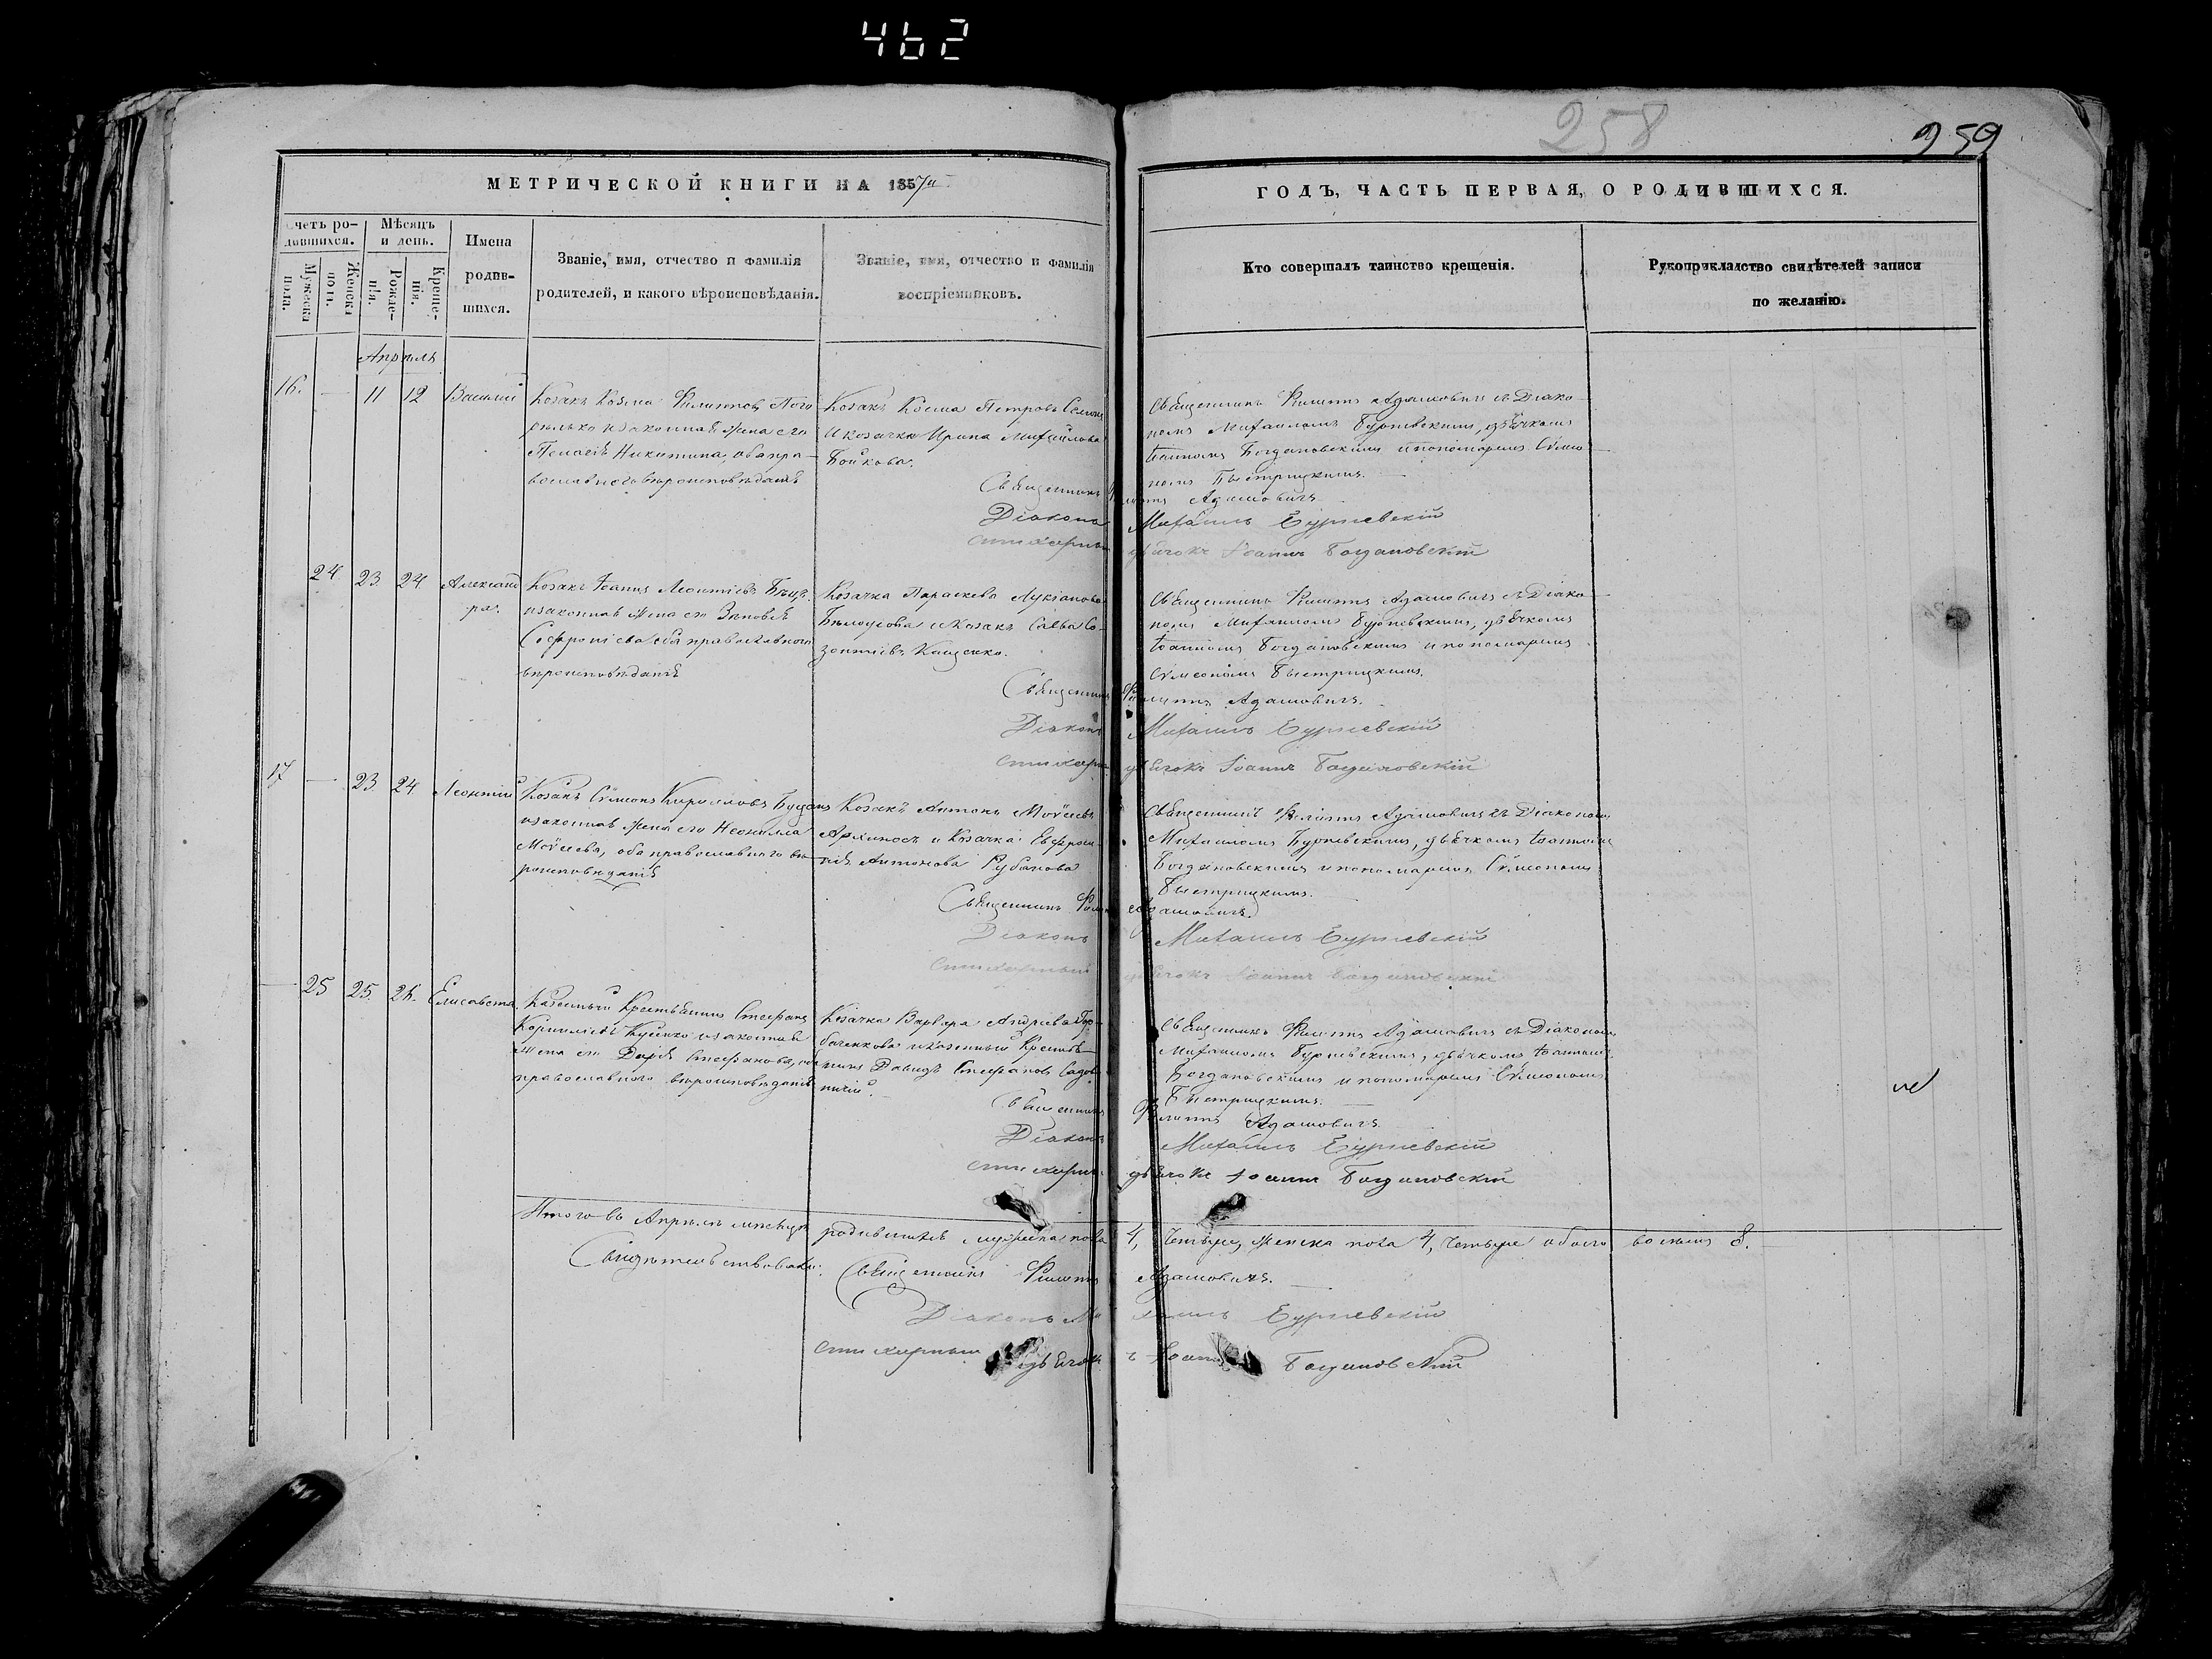 462
258
259
МЕТРИЧЕСКОЙ КНИГИ НА 1857й
ГОДЪ, ЧАСТЬ ПЕРВАЯ, О РОДИВШИХСЯ.
Счетъ ро-
дившихся.
Мужеска
пола.
Женска
пола.
Мѣсяцъ
и день.
Рожде-
нія.
Креще-
нія.
Имена
родив-
шихся.
Званіе, имя, отчество и фамилія
родителей, и какого вѣроисповѣданія.
Званіе, имя, отчество и фамилія
воспріемниковъ.
Кто совершалъ таинство крещенія.
Рукоприкладство свидѣтелей записи
по желанію.
Апрѣль
16. — 11 12 Василій
Козакъ Козма Филиповъ
и законная жена его
Пелагія Никитина, оба пра-
вославнаго вѣроисповѣданія
Козакъ Косма Петровъ
и козачка Ирина Михайлова
Бойкова.
Священникъ Филиппъ Адамовичъ съ Діако-
номъ Михаиломъ Бурневскимъ, дьячкомъ
Іоанномъ Богдановскимъ и пономаремъ Сѵмео-
номъ Быстрицкимъ.
Священникъ Филиппъ Адамовичъ
Діаконъ Михаилъ Бурневскій
стихарный дьячокъ Іоаннъ Богдановскій
24 23 24 Александ
ра.
Козакъ Іоаннъ Леонтіевъ
и законная жена его Зиновія
Софроніева оба православнаго
вѣроисповѣданія
Козачка Параскева Лукіанова
Бѣлоусова и Козакъ Савва Со-
зонтіевъ Кащенко.
Священникъ Филиппъ Адамовичъ съ Діако-
номъ Михаиломъ Бурневскимъ, дьячкомъ
Іоанномъ Богдановскимъ и пономаремъ
Сѵмеономъ Быстрицкимъ.
Священникъ Филиппъ Адамовичъ.
Діаконъ Михаилъ Бурневскій
стихарный дьячокъ Іоаннъ Богдановскій
17 — 23 24 Леонтій
Козакъ Сѵмеонъ Кирилловъ
и законная жена его Неонилла
Моѵсеева, оба православнаго вѣ-
роисповѣданія
Козакъ Антонъ Моѵсеевъ
и Козачка Евфроси-
нія Антонова Рубанова
Священникъ Филиппъ Адамовичъ съ Діакономъ
Михаиломъ Бурневскимъ, дьячкомъ Іоанномъ
Богдановскимъ и пономаремъ Сѵмеономъ
Быстрицкимъ.
Священникъ Филиппъ Адамовичъ.
Діаконъ Михаилъ Бурневскій
стихарный дьячокъ Іоаннъ Богдановскій
— 25 25. 26. Елисавета
Казенный Крестьянинъ Стефанъ
Корнилiевъ и законная
жена его Дарія Стефанова, оба
православнаго вѣроисповѣданія
Козачка Варвара Андреева Гор-
баченкова и казенный Крестья-
нинъ Давидъ Стефановъ Садов-
ничій.
Священникъ Филиппъ Адамовичъ съ Діакономъ
Михаиломъ Бурневскимъ, дьячкомъ Іоанномъ
Богдановскимъ и пономаремъ Сѵмеономъ
Быстрицкимъ.
Священникъ Филиппъ Адамовичъ
Діаконъ Михаилъ Бурневскій
стихарный дьячокъ Іоаннъ Богдановскій
Итого въ Апрѣлѣ мѣсяцѣ родившихся мужеска пола 4, четыре, женска пола 4, четыре обоего восемь 8.
Свидѣтельствовали: Священникъ Филиппъ Адамовичъ.
Діаконъ Михаилъ Бурневскій
стихарный дьячокъ Іоаннъ Богдановскій